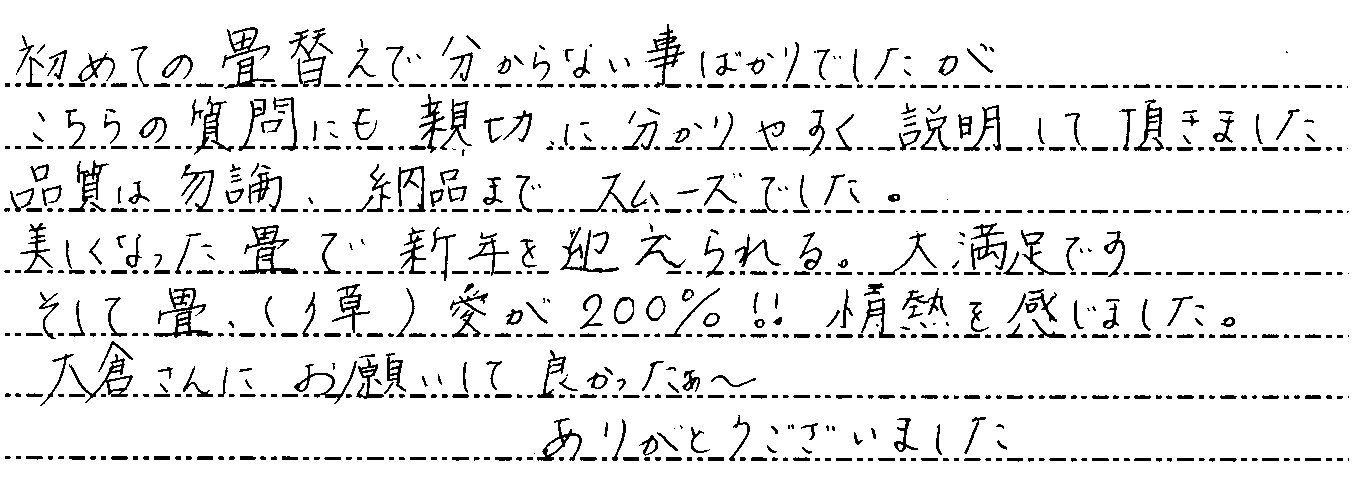 初めての畳替えで分からない事ばかりでしたが
こちらの質問にも親切に分かりやすく説明して頂きました
品質は勿論、納品までスムーズでした。
美しくなった畳で新年を迎えられる。大満足です
そして畳、(イ草)愛が200%!!情熱を感じました。
大倉さんにお願いして良かったぁ〜
ありがとうございました